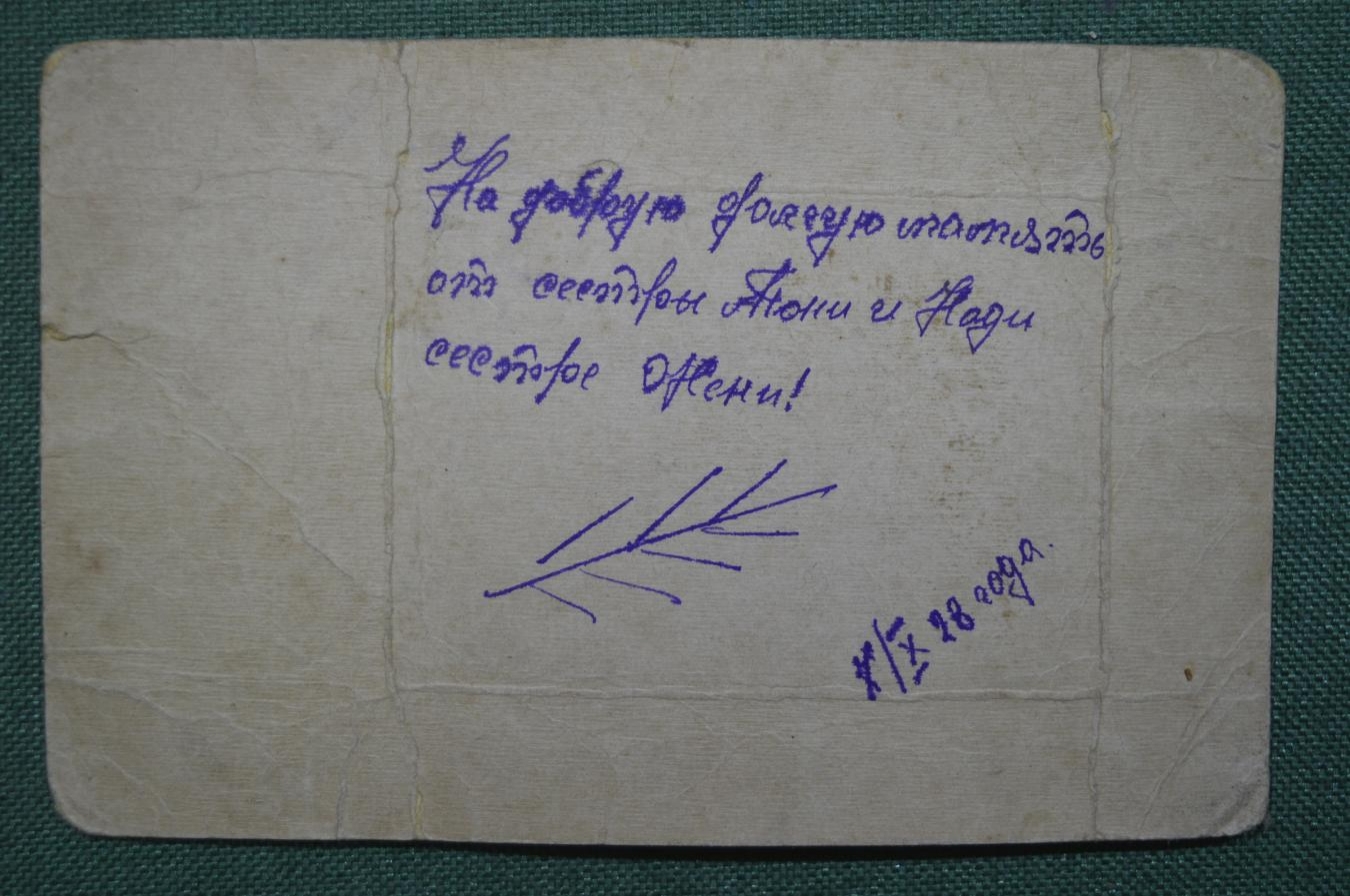 На добрую долгую память
от сестры Тони и Нади
сестре Жени!
/X 28 года.